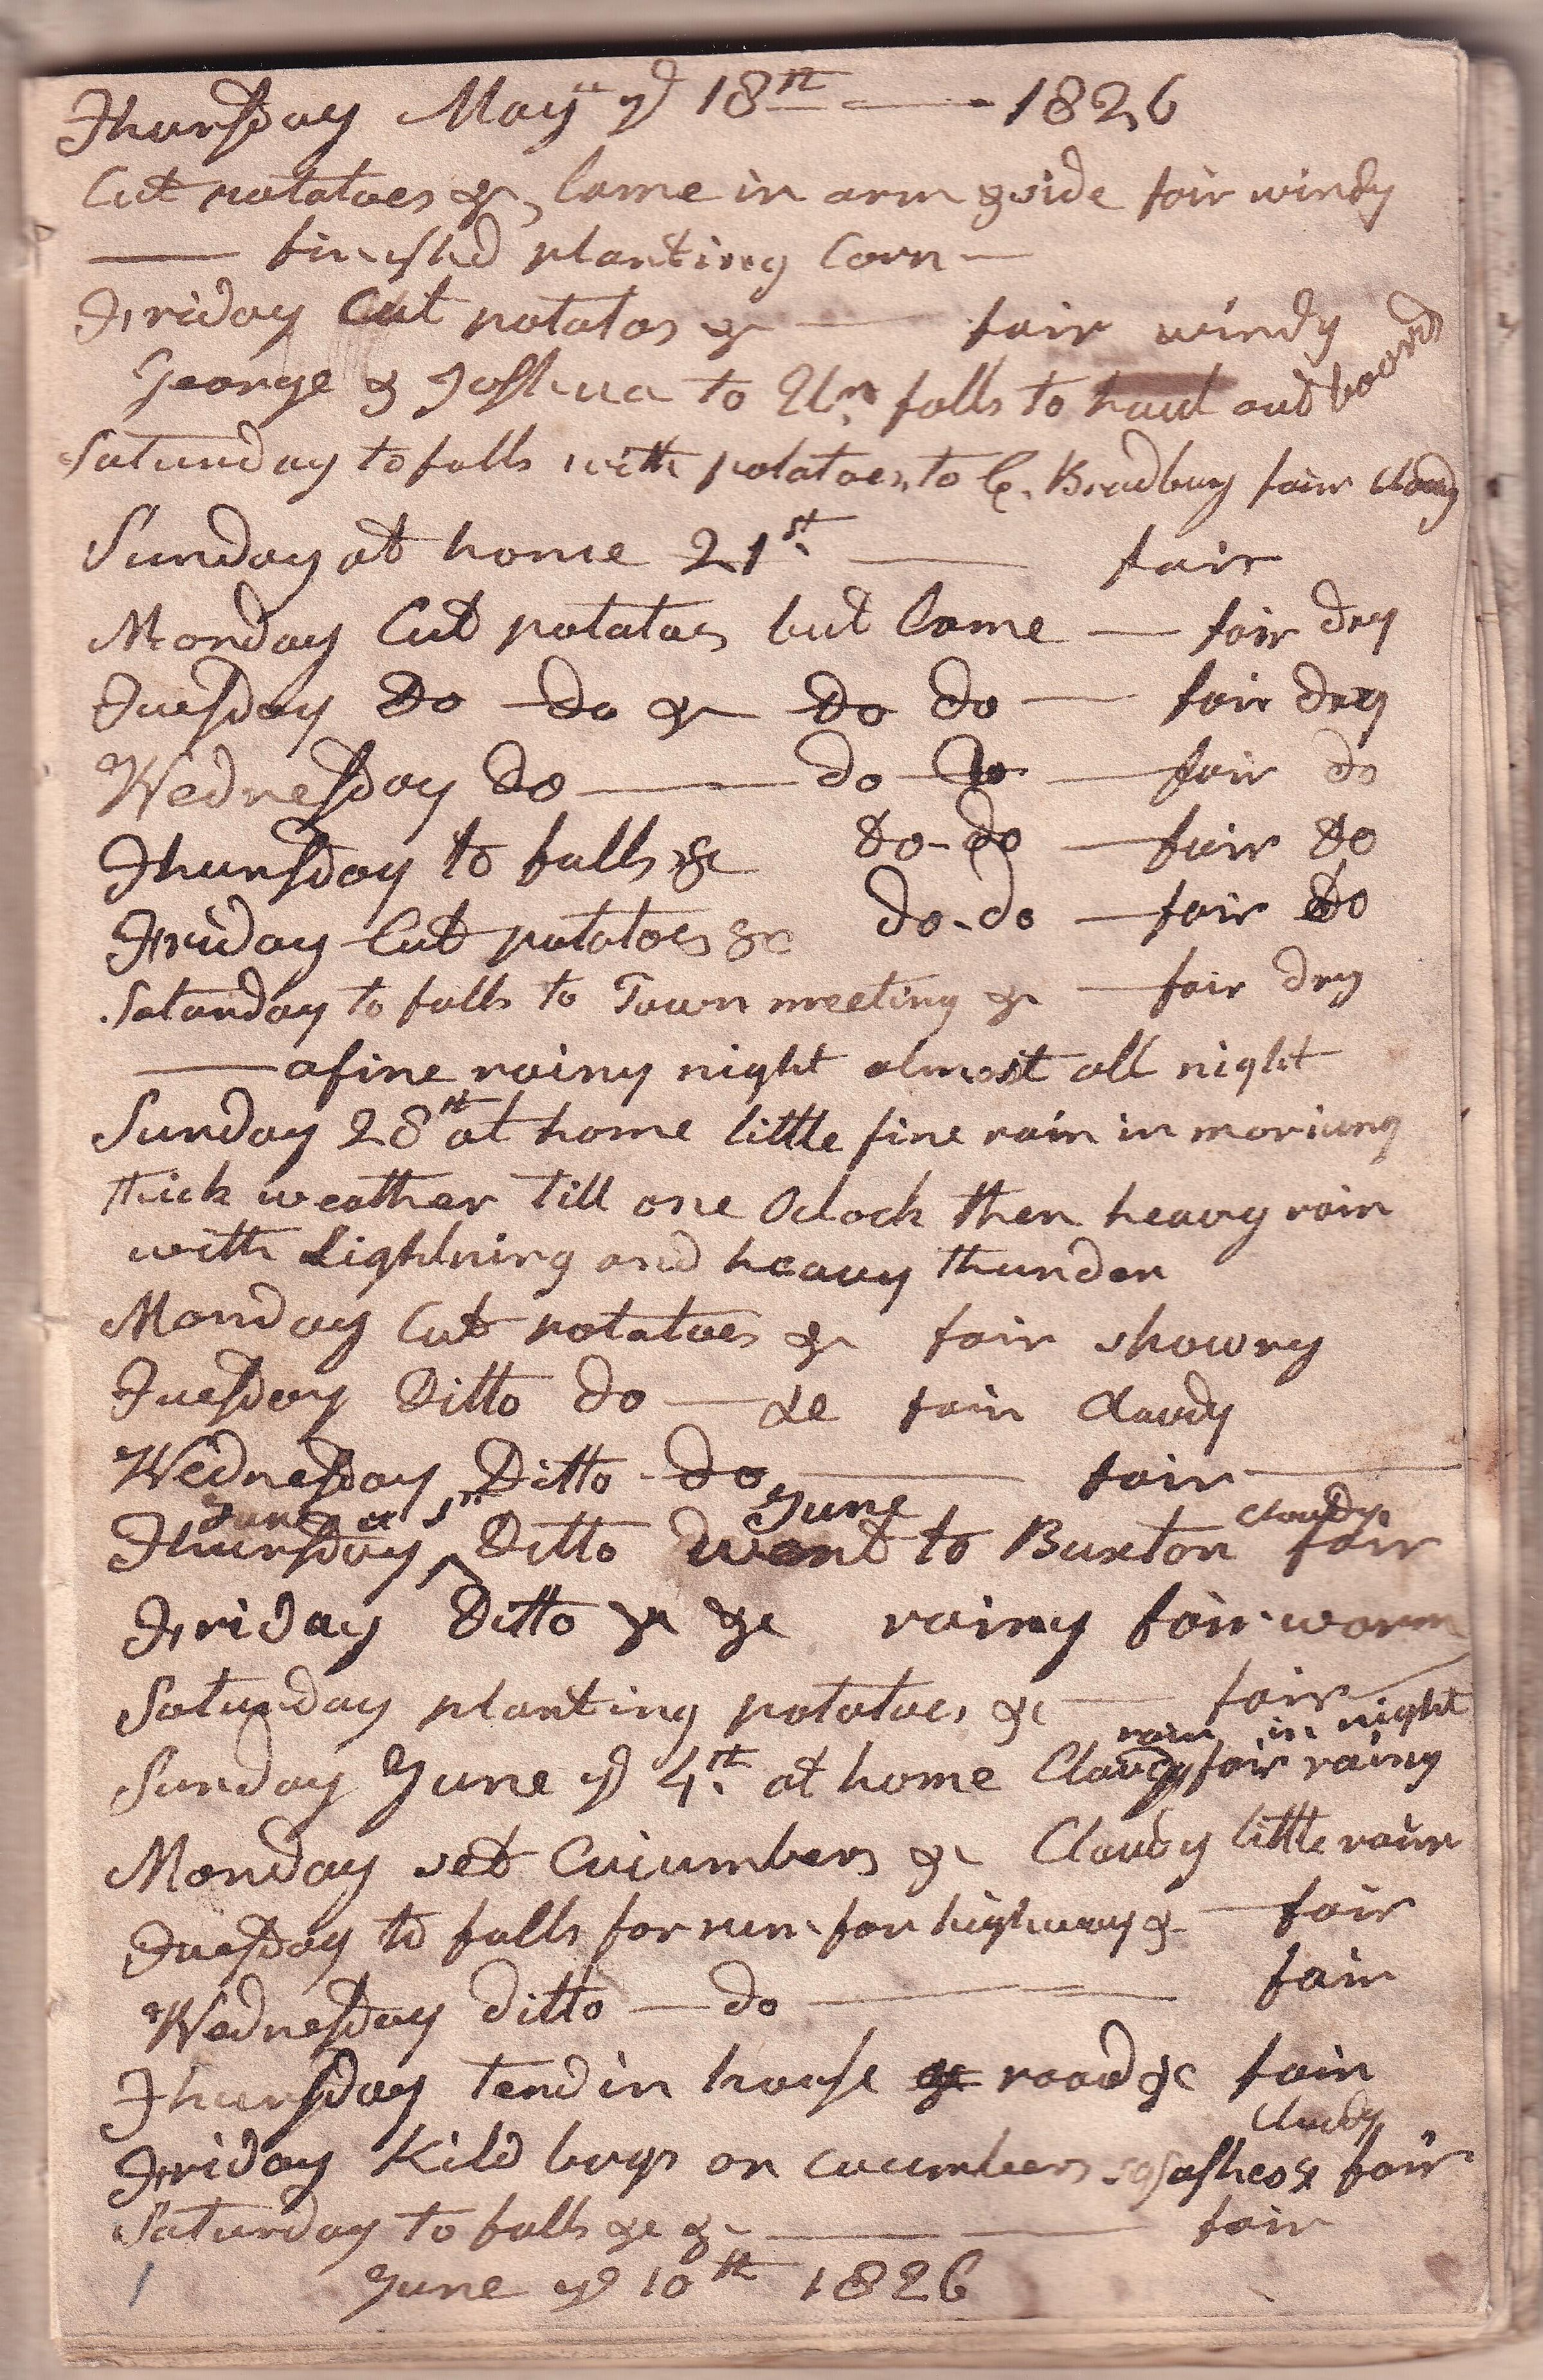 Thursday May ye 18th — 1826
Cut potatoes &c, lame in arm & side fair windy
— finishd planting Corn —
Friday Cut potatos &c — fair windy
George & Joshua to falls to haul out boards
Saturday to falls with potatoes, to C. Bradbury fair Cloudy
Sunday at home 21st — fair
Monday Cut potatoes but lame — fair dry
Tuesday Do Do &c Do do — fair dry
Wednesday do — do do — fair do
Thursday to falls &c do-do — fair do
Friday Cut potatoes &c do-do — fair do
Saturday to falls to Town meeting &c — fair dry
— afine rainy night almost all night
Sunday 28th at home little fine rain in morning
thick weather till one Oclock then heavy rain
with Lightning and heavy thunder
Monday Cut potatoes &c fair showry
Tuesday Ditto do — &c fair Cloudy
Wednesday Ditto do — fair —
June ye 1st June cloudy
Thursday ^ Ditto went to Buxton fair
Friday Ditto &c &c rainy fair warm
Saturday planting potatoes &c — fair
rain in night
Sunday June ye 4th at home Cloudy fair rainy
Monday set Cucumbers &c Cloudy little rain
Tuesday to falls for rum for highway &c — fair
Wednesday ditto — do — fair
Thursday tend in house road &c fair
cloudy
Friday Kild bugs on cucumbers ashes & fair
Saturday to falls &c &c — fair
June ye 10th 1826